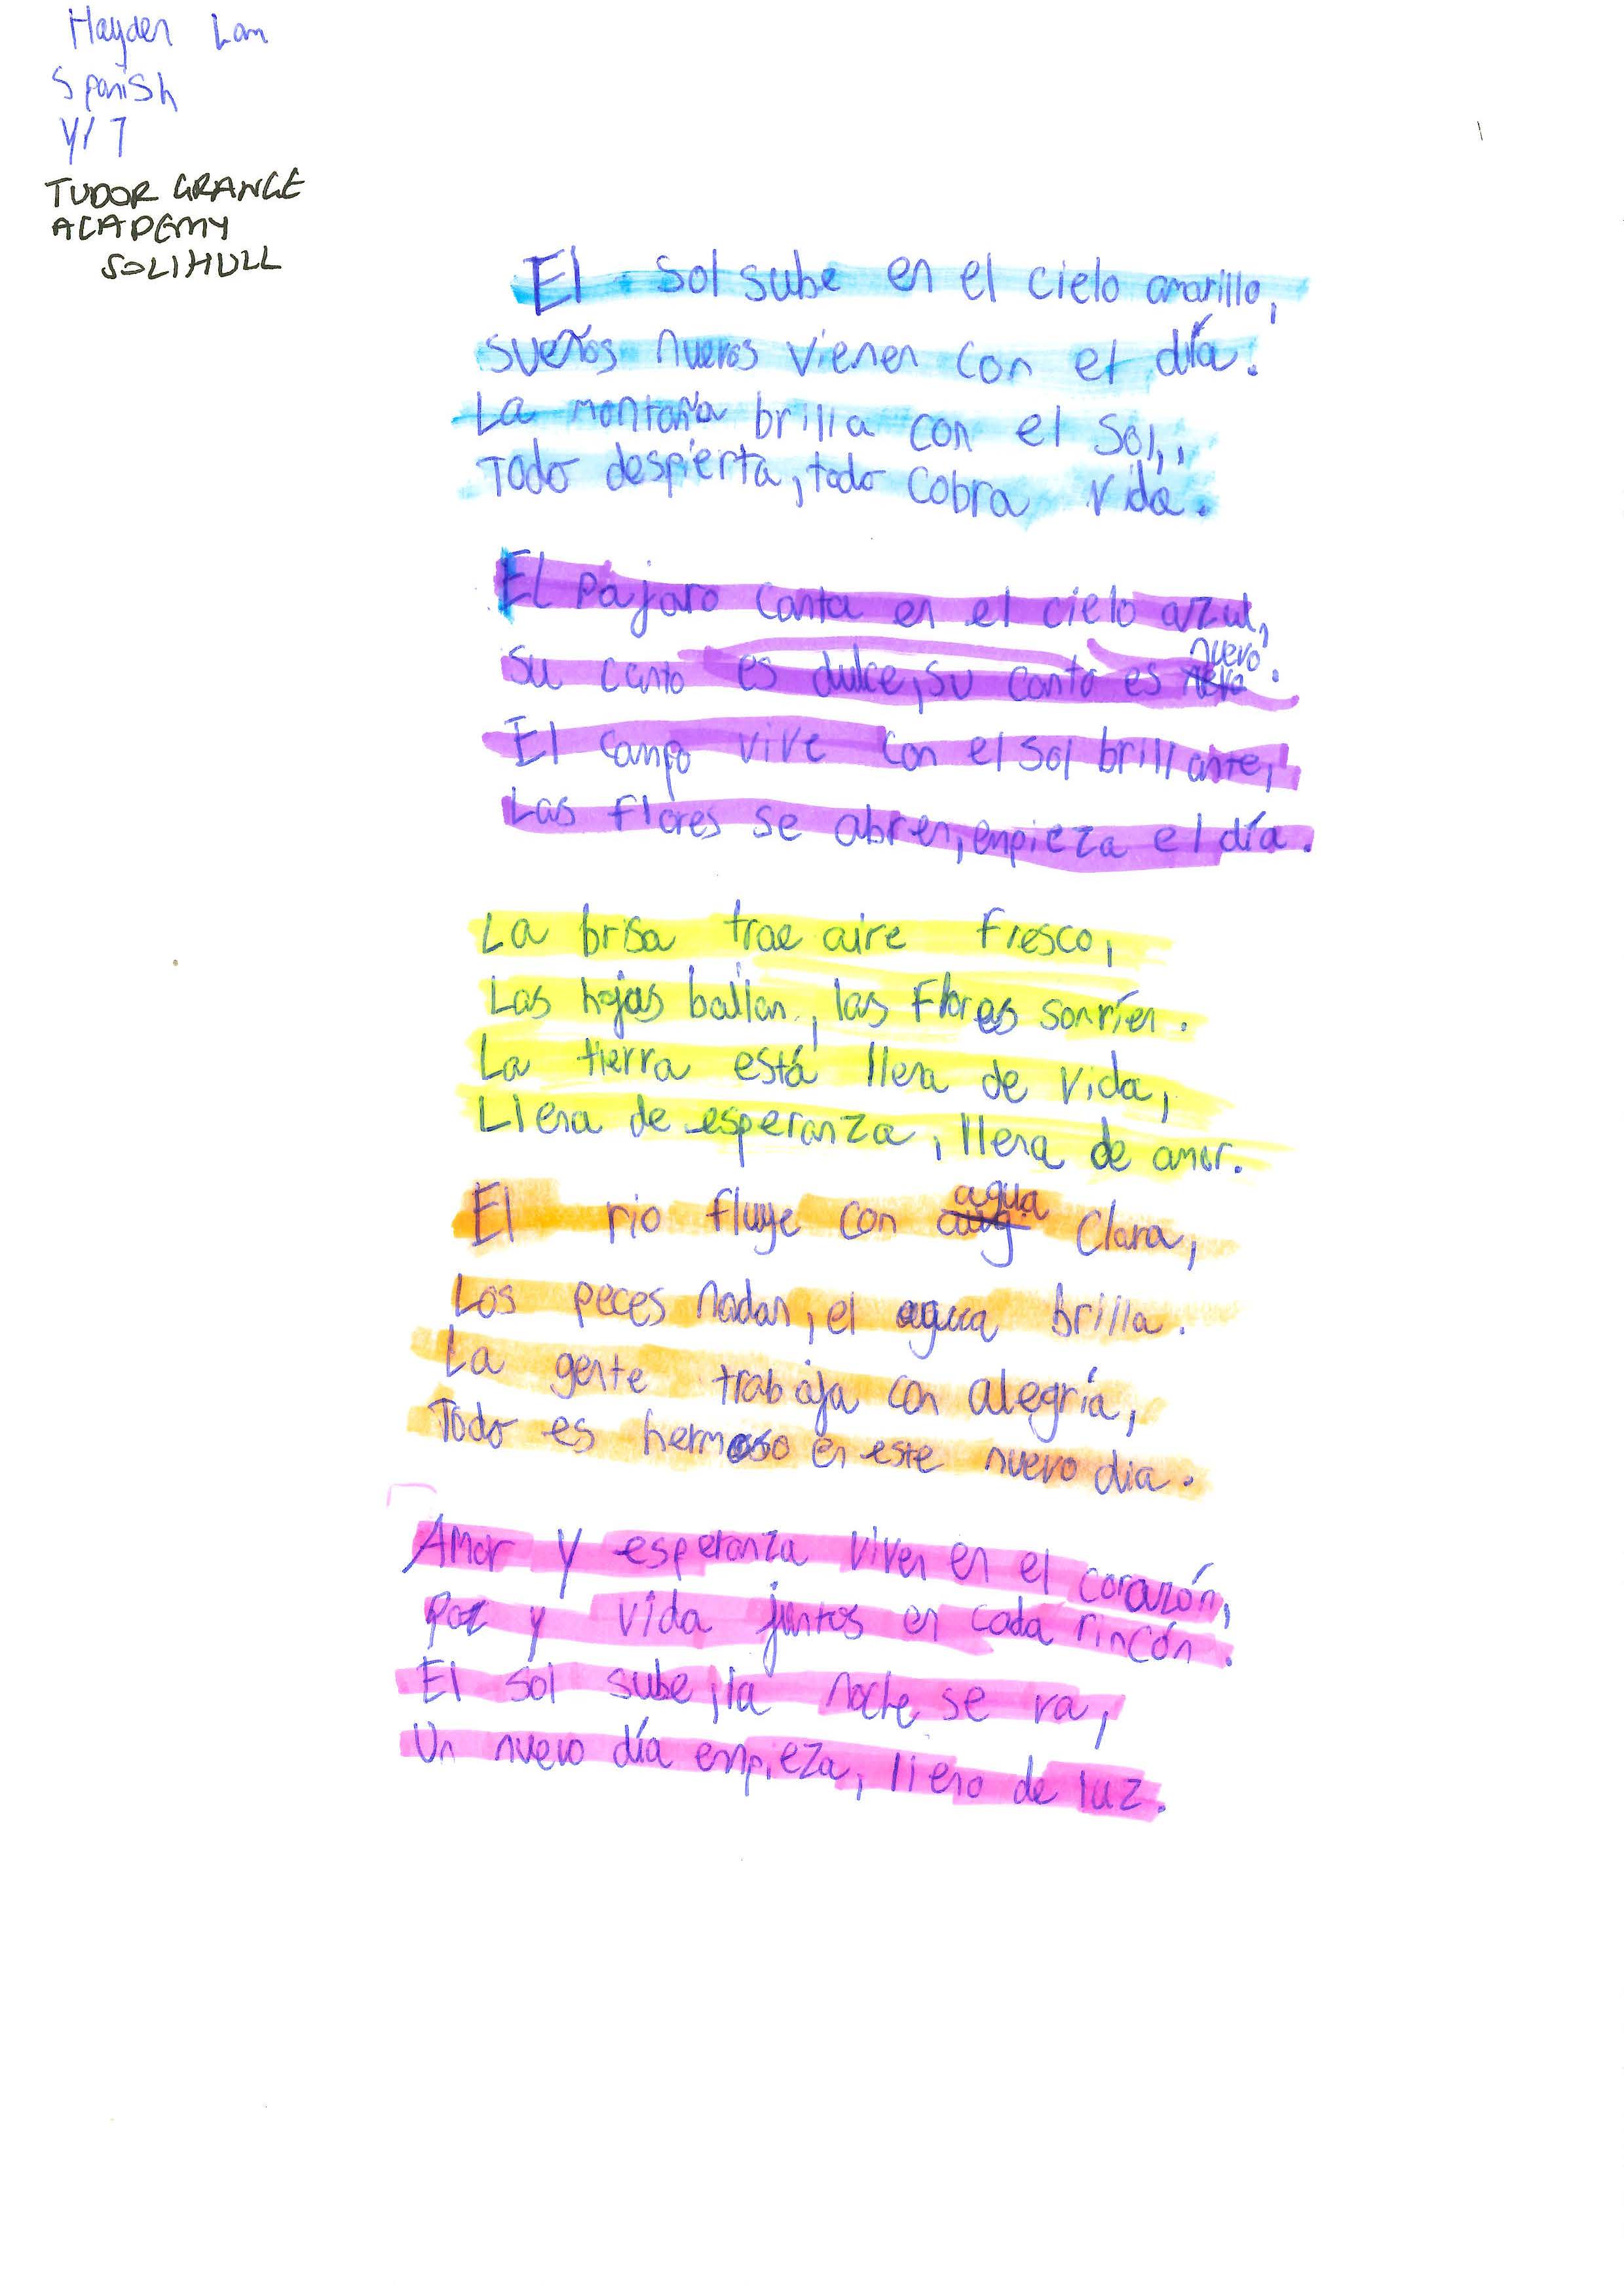 Hayden Lam
Spanish
Yr 7
TUDOR GRANGE
ACADEMY
SOLIHULL
El sol sube en el cielo amarillo,
sueños nuevos vienen con el día.
La montaña brilla con el sol,
Todo despierta, todo cobra vida.
El pajaro canta en el cielo azul,
Su canto es dulce, su canto es nuevo.
El campo vive con el sol brillante,
Las flores se abren, empieza el día.
La brisa trae aire fresco,
Las hojas bailan, las flores sonríen.
La tierra está llena de vida,
Llena de esperanza, llena de amor.
El rio fluye con agua clara,
Los peces nadan, el agua brilla.
La gente trabaja con alegría,
Todo es hermoso en este nuevo dia.
Amor y esperanza viven en el corazón,
Paz y vida juntos en cada rincón.
El sol sube, la noche se va,
Un nuevo día empieza, lleno de luz.